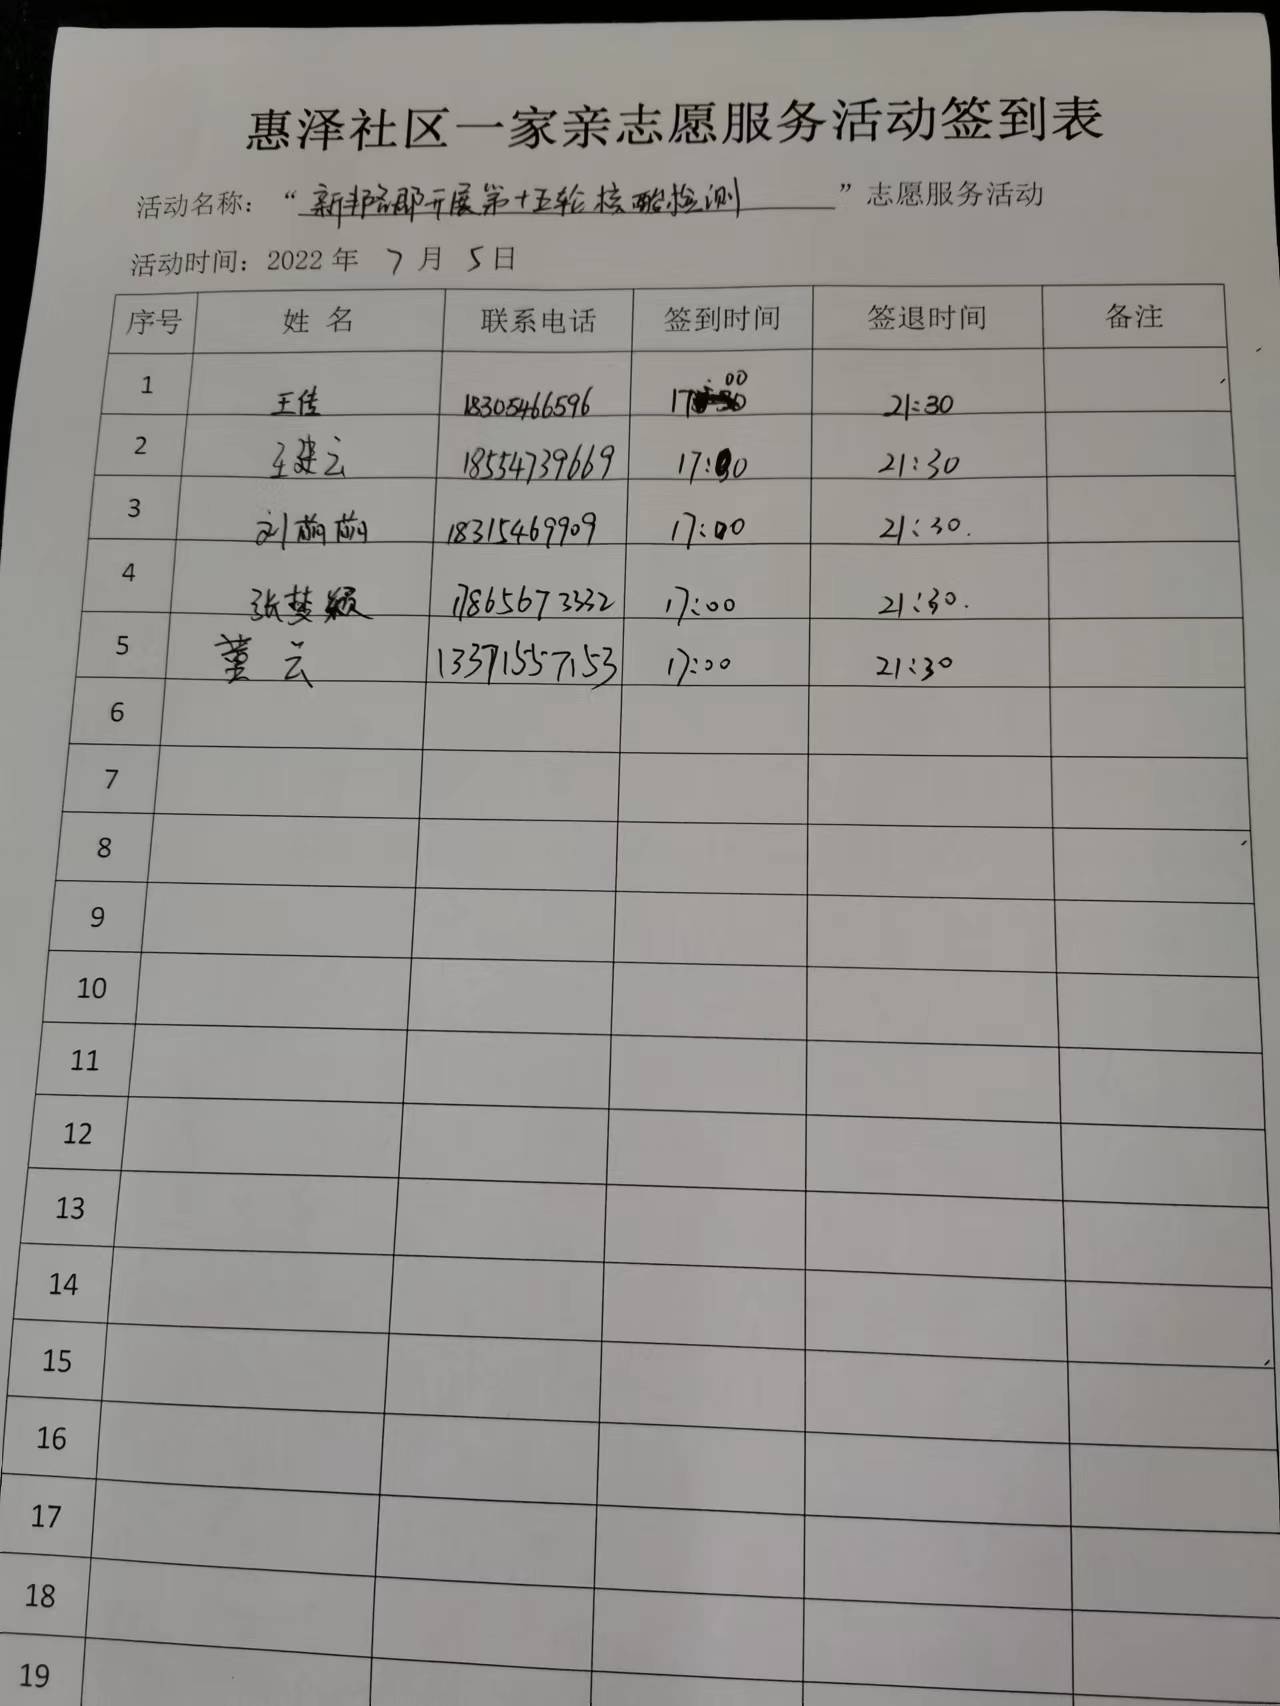 惠泽社区一家亲志愿服务活动签到表
活动名称：“新邦名郡开展第十五轮核酸检测”志愿服务活动
活动时间：2022年 7月 5日
序号 姓 名 联系电话 签到时间 签退时间 备注
1 王传 18305466596 17:00 21:30
2 王建云 18554739669 17:00 21:30
3 刘萌萌 18315469909 17:00 21:30.
4 张梦颖 17865673332 17:00 21:30.
5 董云 13371557153 17:00 21:30
6
7
8
9
10
11
12
13
14
15
16
17
18
19